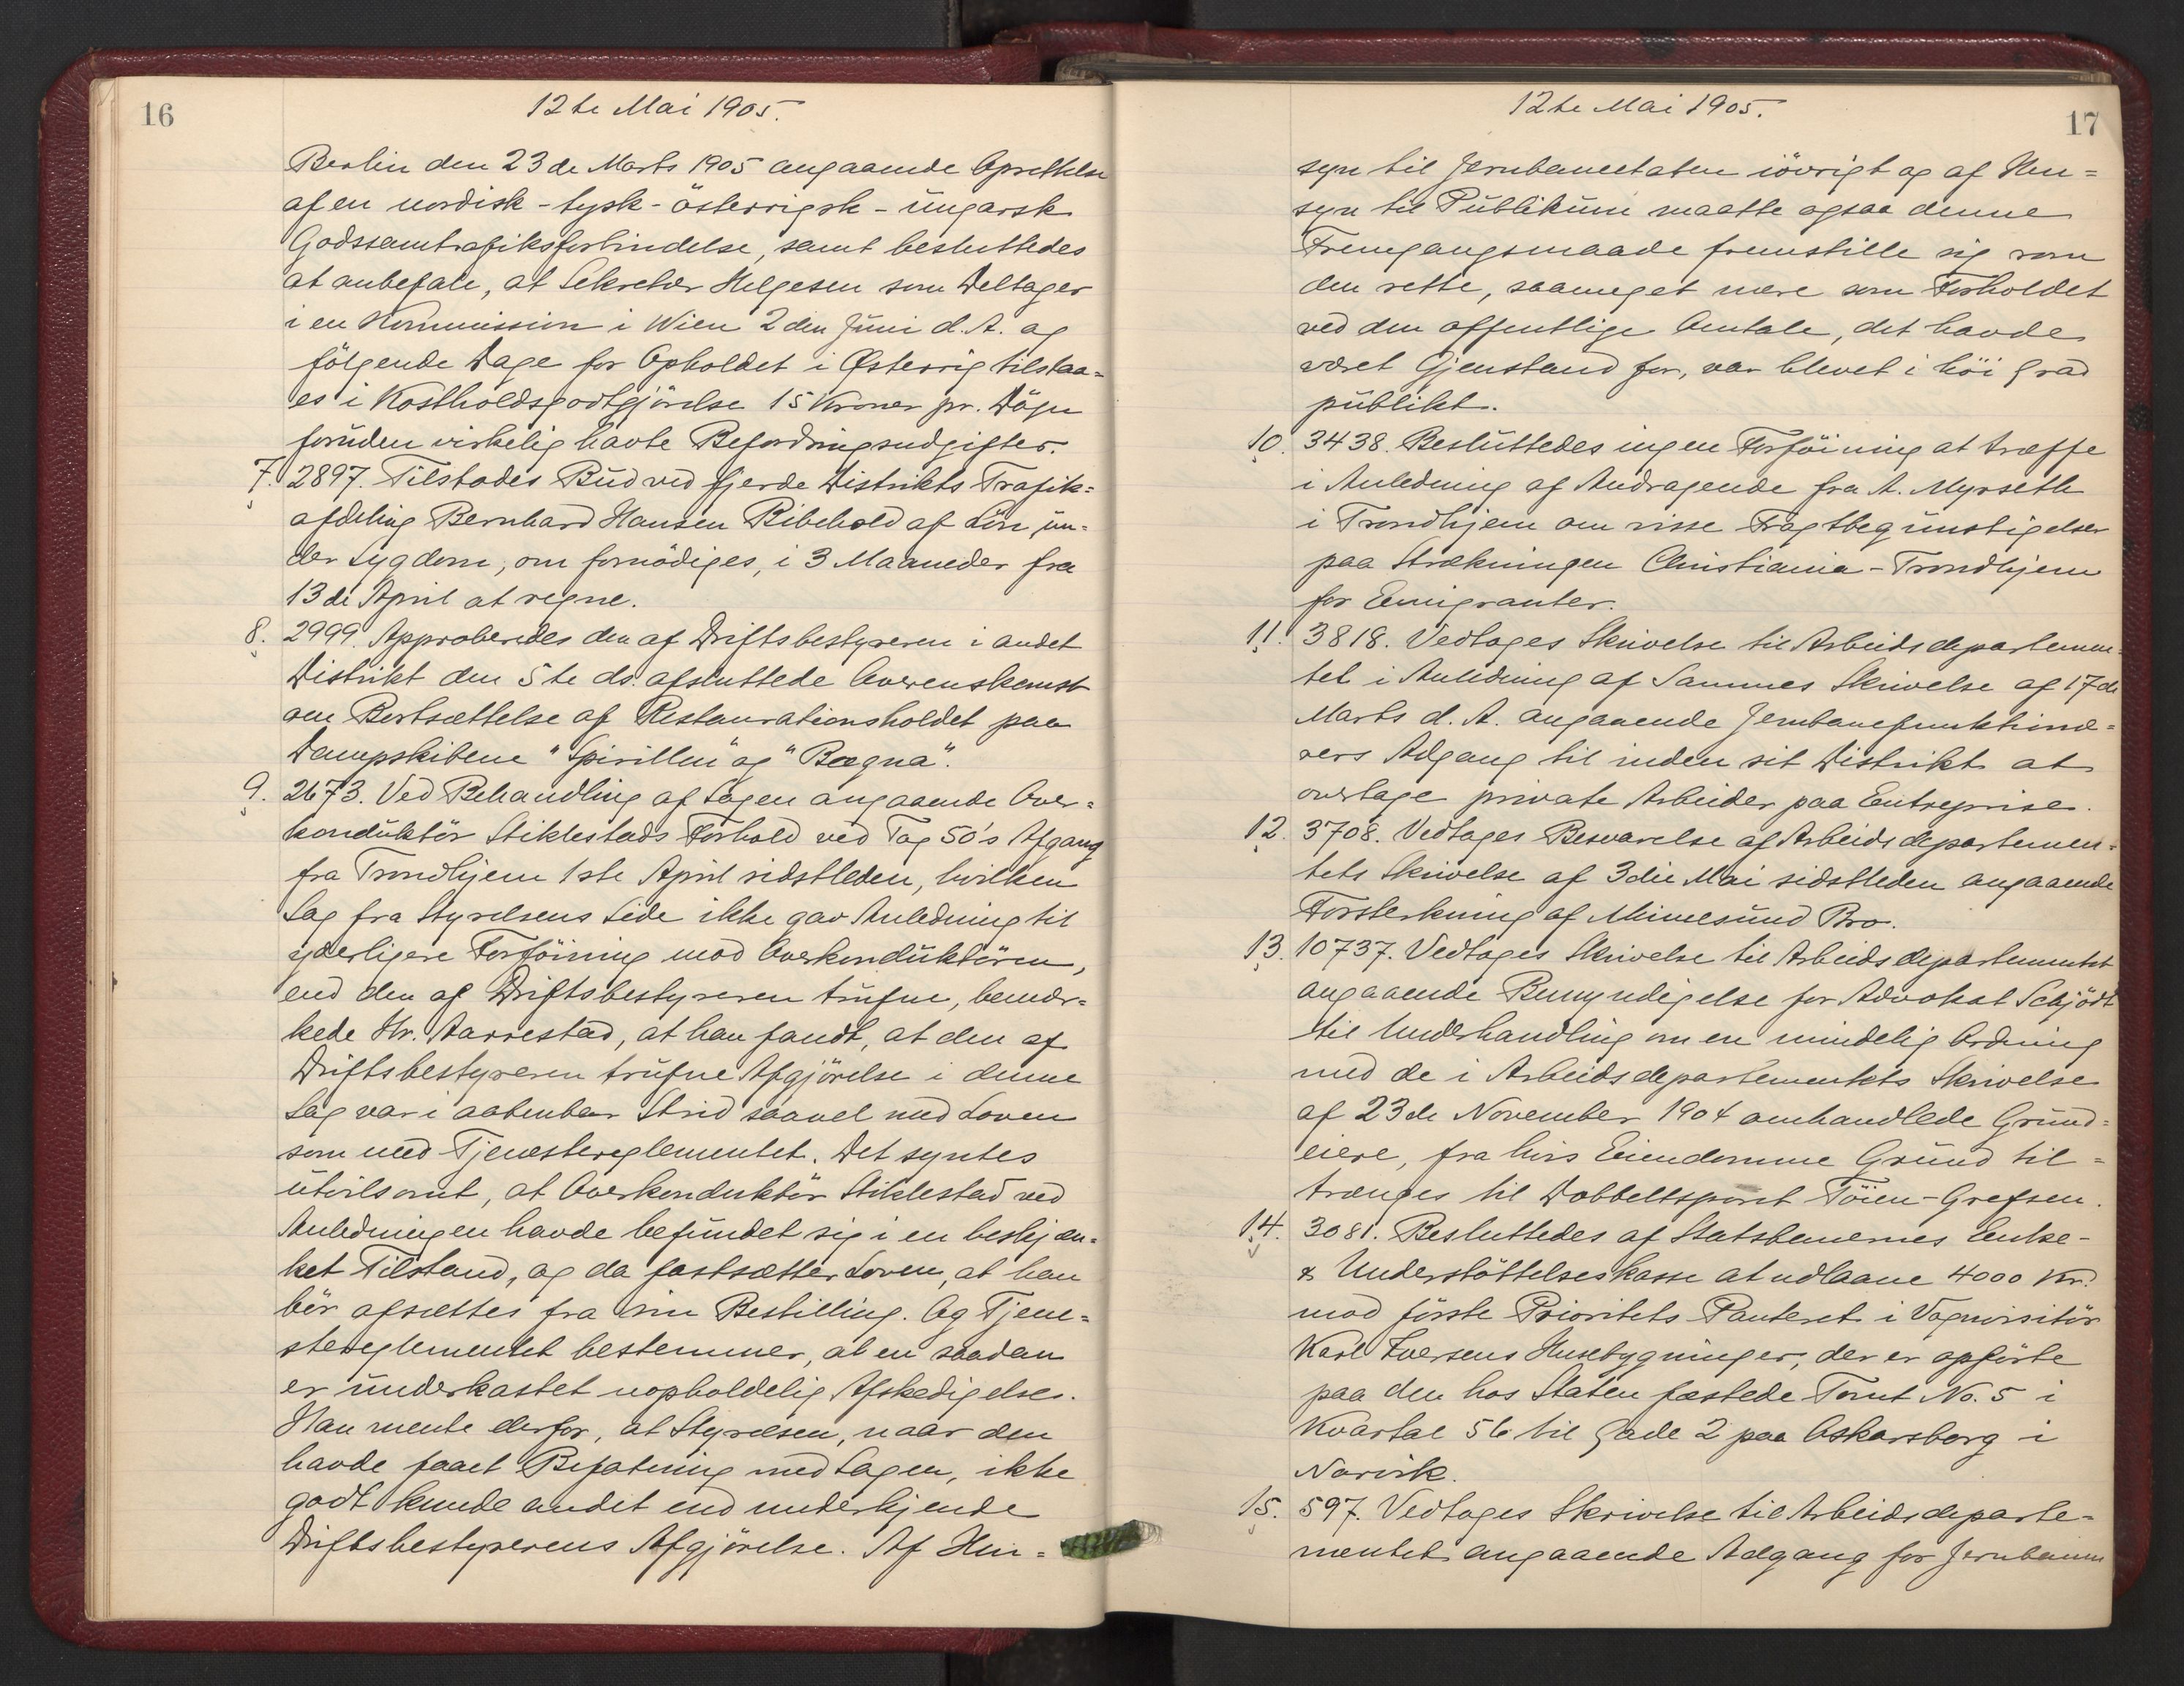 16
12te Mai 1905.
Berlin den 23de Marts 1905 angaaende Oprettelse
af en nordisk-tysk-österrigsk-ungarsk
Godssamtrafiksforbindelse, samt besluttedes
at anbefale, at Sekretær Helgesen som Deltager
i en Kommission i Wien 2den Juni d. A. og
fölgende Dage for Opholdet i Østerrig tilstaa=
es i Kostholdsgodtgjörelse 15 Kroner pr. Dögn
foruden virkelig havte Befordringsudgifter.
7. 2897. Tilstodes Bud ved fjerde Distrikts Trafik=
afdeling Bernhard Hansen Bibehold af Lön un=
der Sygdom, om fornödiges, i 3 Maaneder fra
13de April at regne.
8. 2999. Approberedes den af Driftsbestyreren i andet
Distrikt den 5te ds. afsluttede Overenskomst
om Bortsættelse af Restaurationsholdet paa
Dampskibene "Spirillen" og "Bægna".
9. 2673. Ved Behandling af Sagen angaaende Over=
konduktör Stiklestads Forhold ved Tog 50's Afgang
fra Trondhjem 1ste April sidstleden, hvilken
Sag fra Styrelsens Side ikke gav Anledning til
yderligere Forföining mod Overkonduktören,
end den af Driftsbestyreren trufne, bemær=
kede Hr. Aarrestad, at han fandt, at den af
Driftsbestyreren trufne Afgjörelse i denne
Sag var i aabenbar Strid saavel med Loven
som med Tjenestereglementet. Det syntes
utvilsomt, at Overkonduktör Stiklestad ved
Anledningen havde befundet sig i en beskjæn=
ket Tilstand, og da fastsætter Loven, at han
bör afsættes fra sin Bestilling. Og Tjene=
stereglementet bestemmer, at en saadan
er underkastet uopholdelig Afskedigelse.
Han mente derfor, at Styrelsen, naar den
havde faaet Befatning med Sagen, ikke
godt kunde andet end underkjende
Driftsbestyrerens Afgjörelse. Af Hen=
17
12te Mai 1905.
syn til Jernbaneetaten iövrigt og af Hen=
syn til Publikum maatte ogsaa denne
Fremgangsmaade fremstille sig som
den rette, saameget mere som Forholdet
ved den offentlige Omtale, det havde
været Gjenstand for, var blevet i höi Grad
publikt.
10. 3438. Besluttedes ingen Forföining at træffe
i Anledning af Andragende fra A. Myrseth
i Trondhjem om visse Fragtbegunstigelser
paa Strækningen Christiania-Trondhjem
for Emigranter.
11. 3818. Vedtoges Skrivelse til Arbeidsdepartemen=
tet i Anledning af Sammes Skrivelse af 17de
Marts d. A. angaaende Jernbanefunktionæ=
rers Adgang til inden sit Distrikt at
overtage private Arbeider paa Entreprise.
12. 3708. Vedtoges Besvarelse af Arbeidsdepartemen=
tets Skrivelse af 3die Mai sidstleden angaaende
Forsterkning af Minnesund Bro.
13. 10737. Vedtoges Skrivelse til Arbeidsdepartementet
angaaende Bemyndigelse for Advokat Schjödt
til Underhandling om en mindelig Ordning
med de i Arbeidsdepartementets Skrivelse
af 23de November 1904 omhandlede Grund=
eiere, fra hvis Eiendomme Grund til=
trænges til Dobbeltsporet Töien-Grefsen.
14. 3081. Besluttedes af Statsbanernes Enke-
& Understöttelseskasse at udlaane 4000 Kr.
mod förste Prioritets Panteret i Vognvisitör
Karl Iversens Husebygninger, der er opförte
paa den hos Staten fæstede Tomt No. 5 i
Kvartal 56 til Gade 2 paa Oskarsborg i
Narvik.
15. 597. Vedtoges Skrivelse til Arbeidsdeparte=
mentet angaaende Adgang for Jernbanen